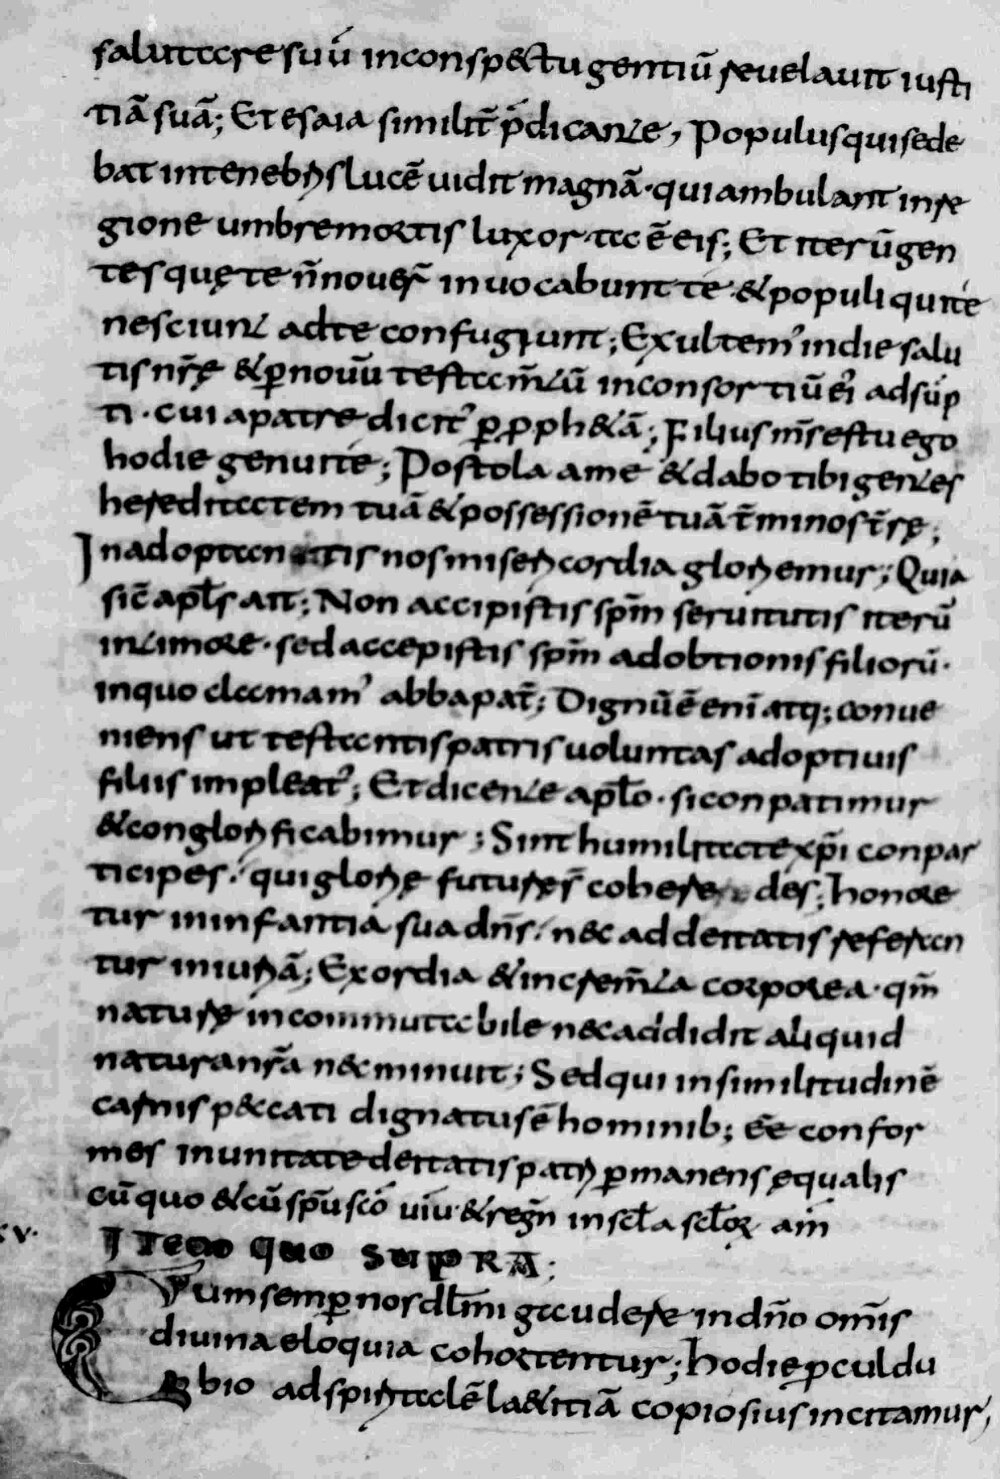 salutare suū inconspectu gentiū reuelauit iusti
tiā suā; Et esaia similit̄ p̄dicante, Populus qui sede
bat intenebris lucē uidit magnā · qui ambulant inre
gione umbre mortis lux orta ē eis; Et iterū gen
tes quę te ñ nouer̄ inuocabunt te · & populi qui te
nesciunt ad te confugiunt; Exultem' indie salu
tis nr̄ę & ꝑ nouū testam̄tū inconsortiū ei' adsūp
ti · cui apatre dicit' ꝑ ꝓph&ā; Filius m̄s es tu ego
hodie genui te; Postola ame & dabo tibi gentes
hereditatem tuā & possessionē tuā t̄minos t̄rę;
Inadoptantis nos misericordia gloriemur; Quia
sic̄ apl̄s ait; Non accipistis spm̄ seruitutis iterū
intimore · sed accepistis spm̄ adobtionis filiorū ·
inquo clamam' abba pat̄; Dignū ē eni atq; conue
niens ut testantis patris uoluntas adoptiuis
filiis impleat'; Et dicente apl̄o · si conpatimur
& conglorificabimur; Sint humilitate xp̄i conpar
ticipes · qui glorię futurę s̄ coheredes; honore
tur ininfantia sua dn̄s · nec ad deitatis referan
tur iniuriā; Exordia & increm̄ta corporea · qm̄
naturę incommutabile nec addidit aliquid
natura nr̄a nec minuit; Sed qui insimilitudinē
carnis peccati dignatus ē hominib; ēe confor
mes inunitate deitatis patri ꝑmanens ęqualis
cū quo & cū spū scō uiu · & regn̄ insc̄la sc̄loꝝ am̄
xv · ITEM QUO SUPRA;
Cum semꝑ nos dl̄mi gaudere indn̄o om̄s
diuina eloquia cohortentur; hodie ꝓculdu
bio ad spiritalē laetitiā copiosius incitamur,